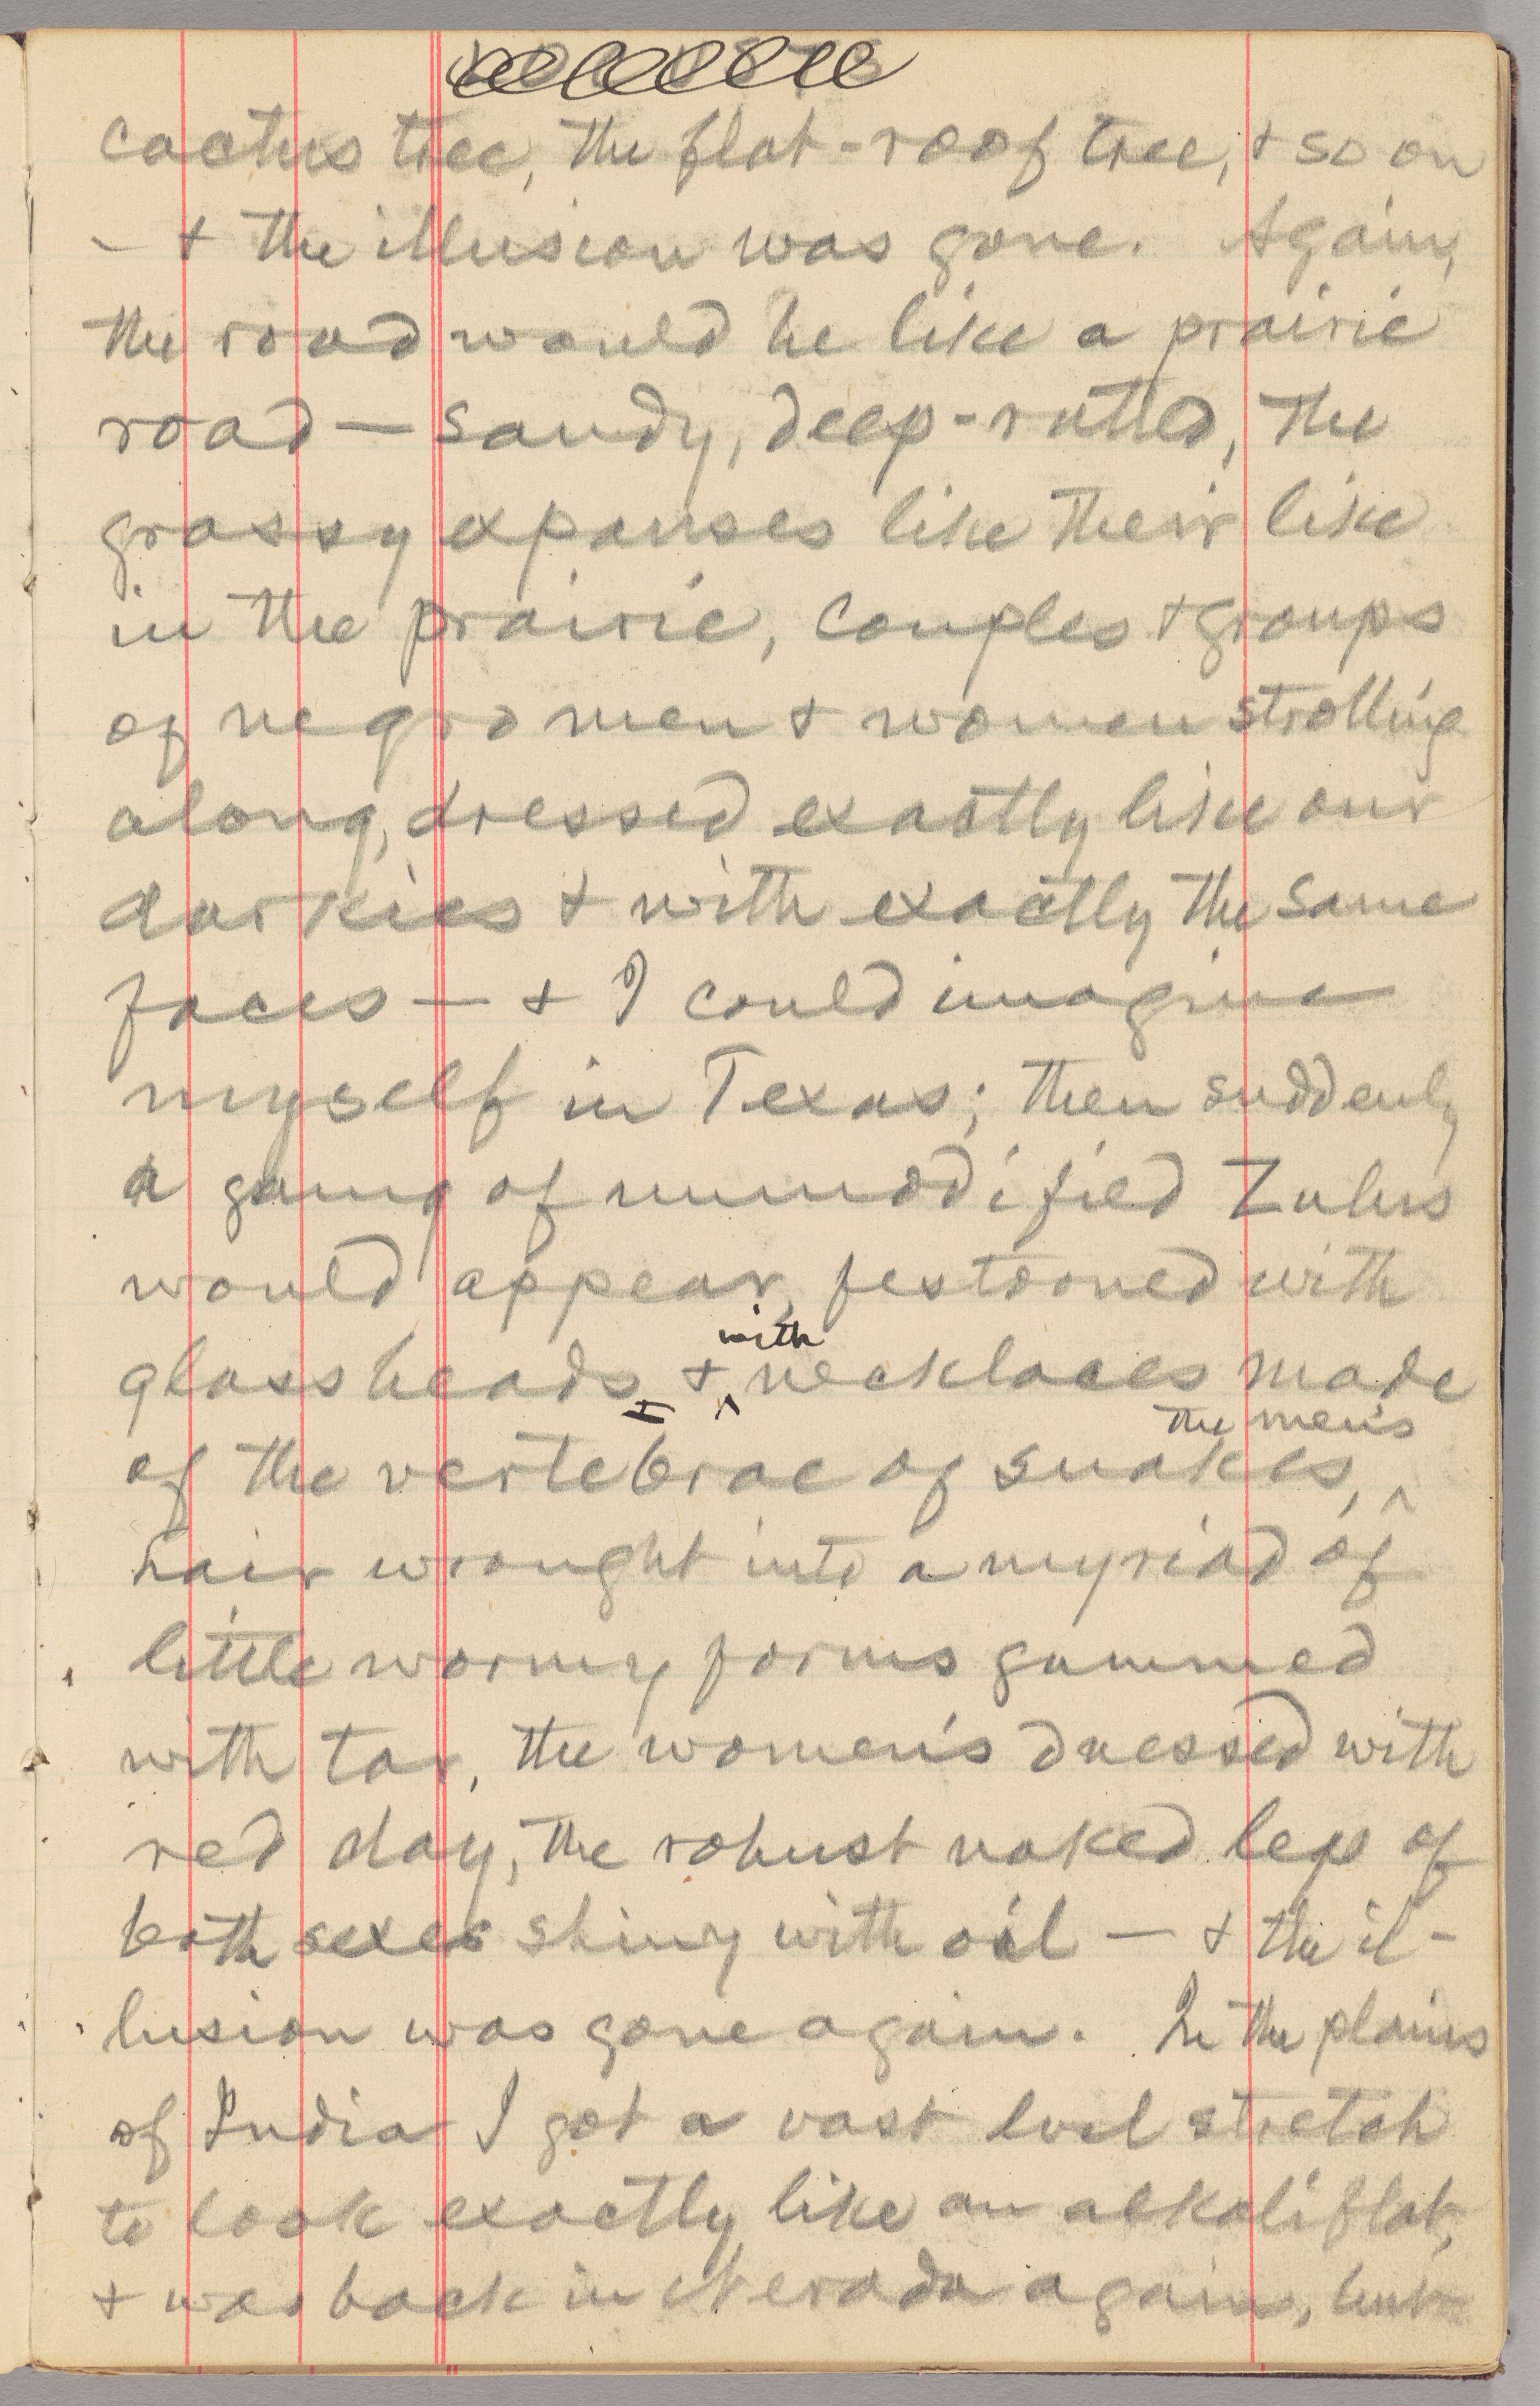 cactus tree, the flat-roof tree, + so on
— + the illusion was gone. Again,
the road would be like a prairie
road — sandy, deep-rutted, the
grassy expanses like their like
in the prairie, couples + groups
of negro men + women strolling
along, dressed exactly like our
darkies + with exactly the same
faces — + I could imagine
myself in Texas; then suddenly
a gang of unmodified Zulus
would appear, festooned with
with
glass beads + necklaces made
the men's
of the vertebrae of snakes,
hair wrought into a myriad of
little wormy forms gummed
with tar, the women's dressed with
red clay, the robust naked legs of
both sexes shiny with oil — + the il-
lusion was gone again. In the plains
of India I got a vast level stretch
to look exactly like an alkali flat,
+ was back in Nevada again, but